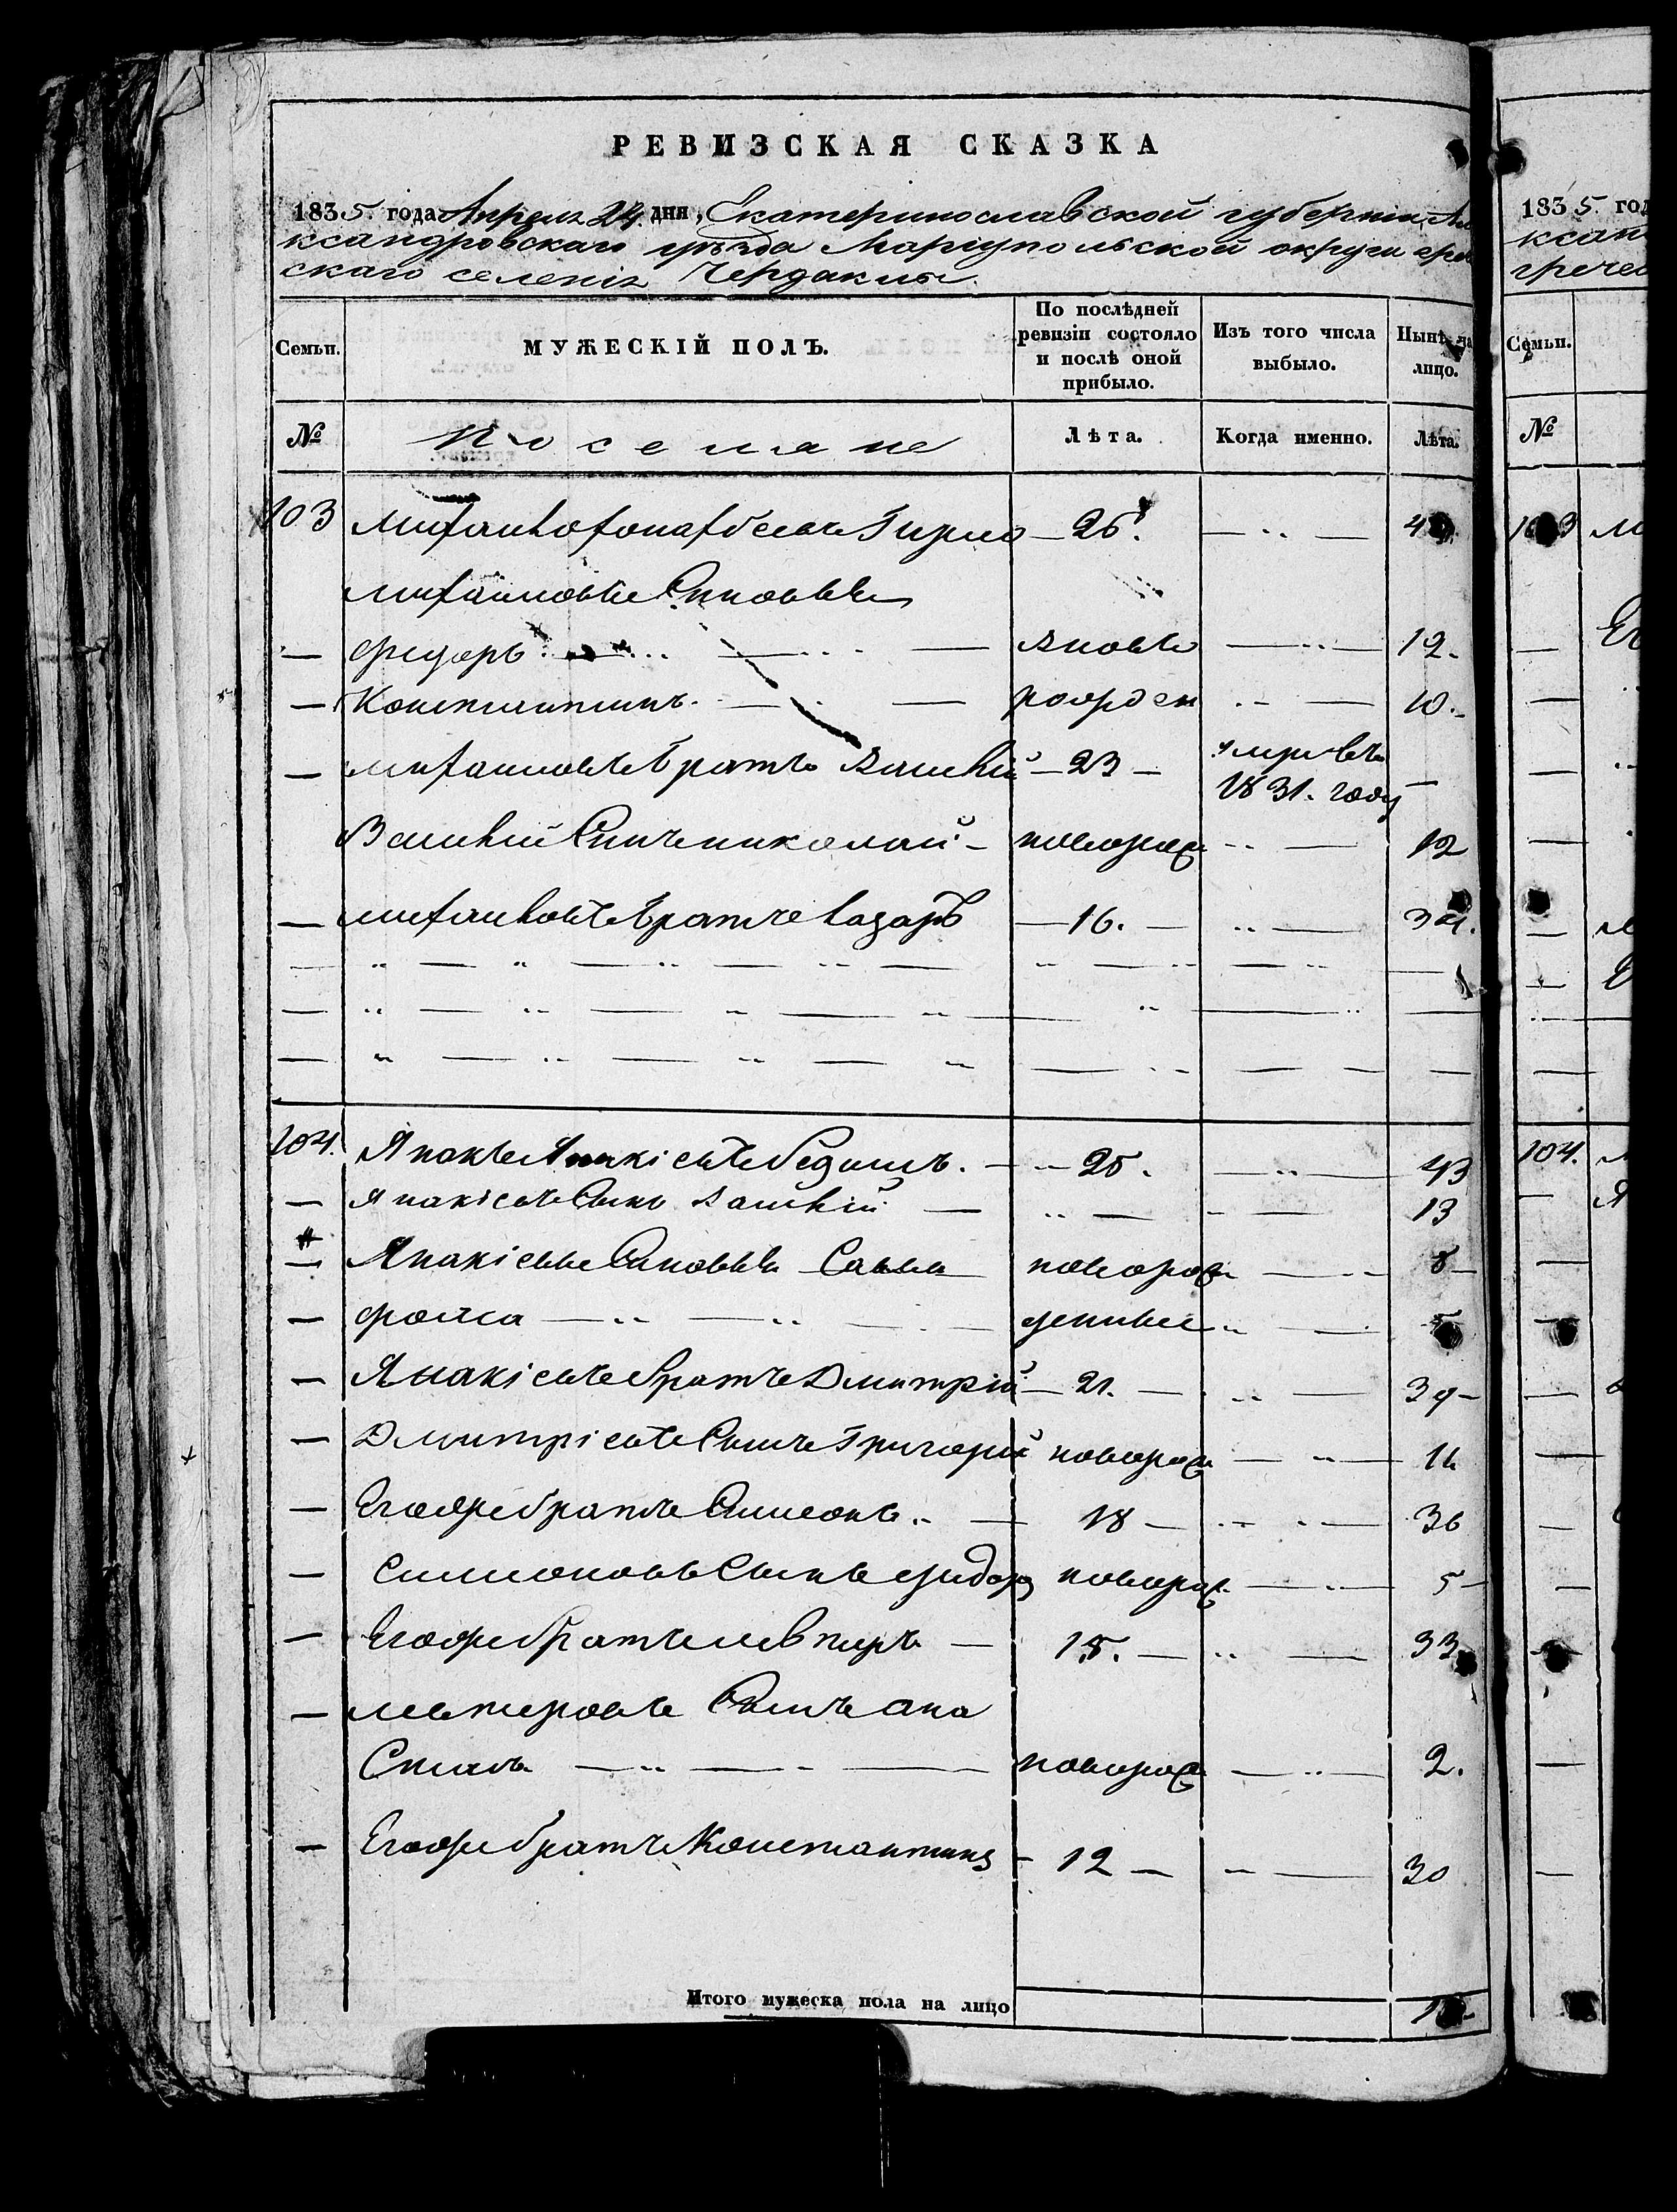 РЕВИЗСКАЯ СКАЗКА
1835. года Апреля 24. дня, Екатеринославской губернии Але
ксандровскаго уѣзда Маріупольской округи грече
скаго селенія Чердаклы
Семьи.
МУЖЕСКІЙ ПОЛЪ.
По послѣдней ревизіи состояло и послѣ оной прибыло.
Изъ того числа выбыло.
Нынѣ на лицо.
№ Поселяне Лѣта. Когда именно. Лѣта.
103 26.
Михайловы Сыновья
Федоръ вновь 12.
Константинъ рожден 10.
Михайловъ братъ Василій 23 умръ въ
1831. году
Василія Сынъ Николай новорож 12
братъ Лазарь 16. 34.
104. 25. 43
Сынъ Василій 13
Сыновья Савва новорож 8
Фома денные 5
братъ Дмитрій 21. 39
Дмитріевъ Сынъ Григорій новорож 11
Егоже братъ Симеонъ 18 36
Симионовъ Сынъ Федоръ новорож 5
Егоже братъ 15. 33
Сынъ Ана
новорож 2.
Егоже братъ Константинъ 12 30
Итого мужеска пола на лицо
1835. год
ксан
гречес
Семьи.
№
104.